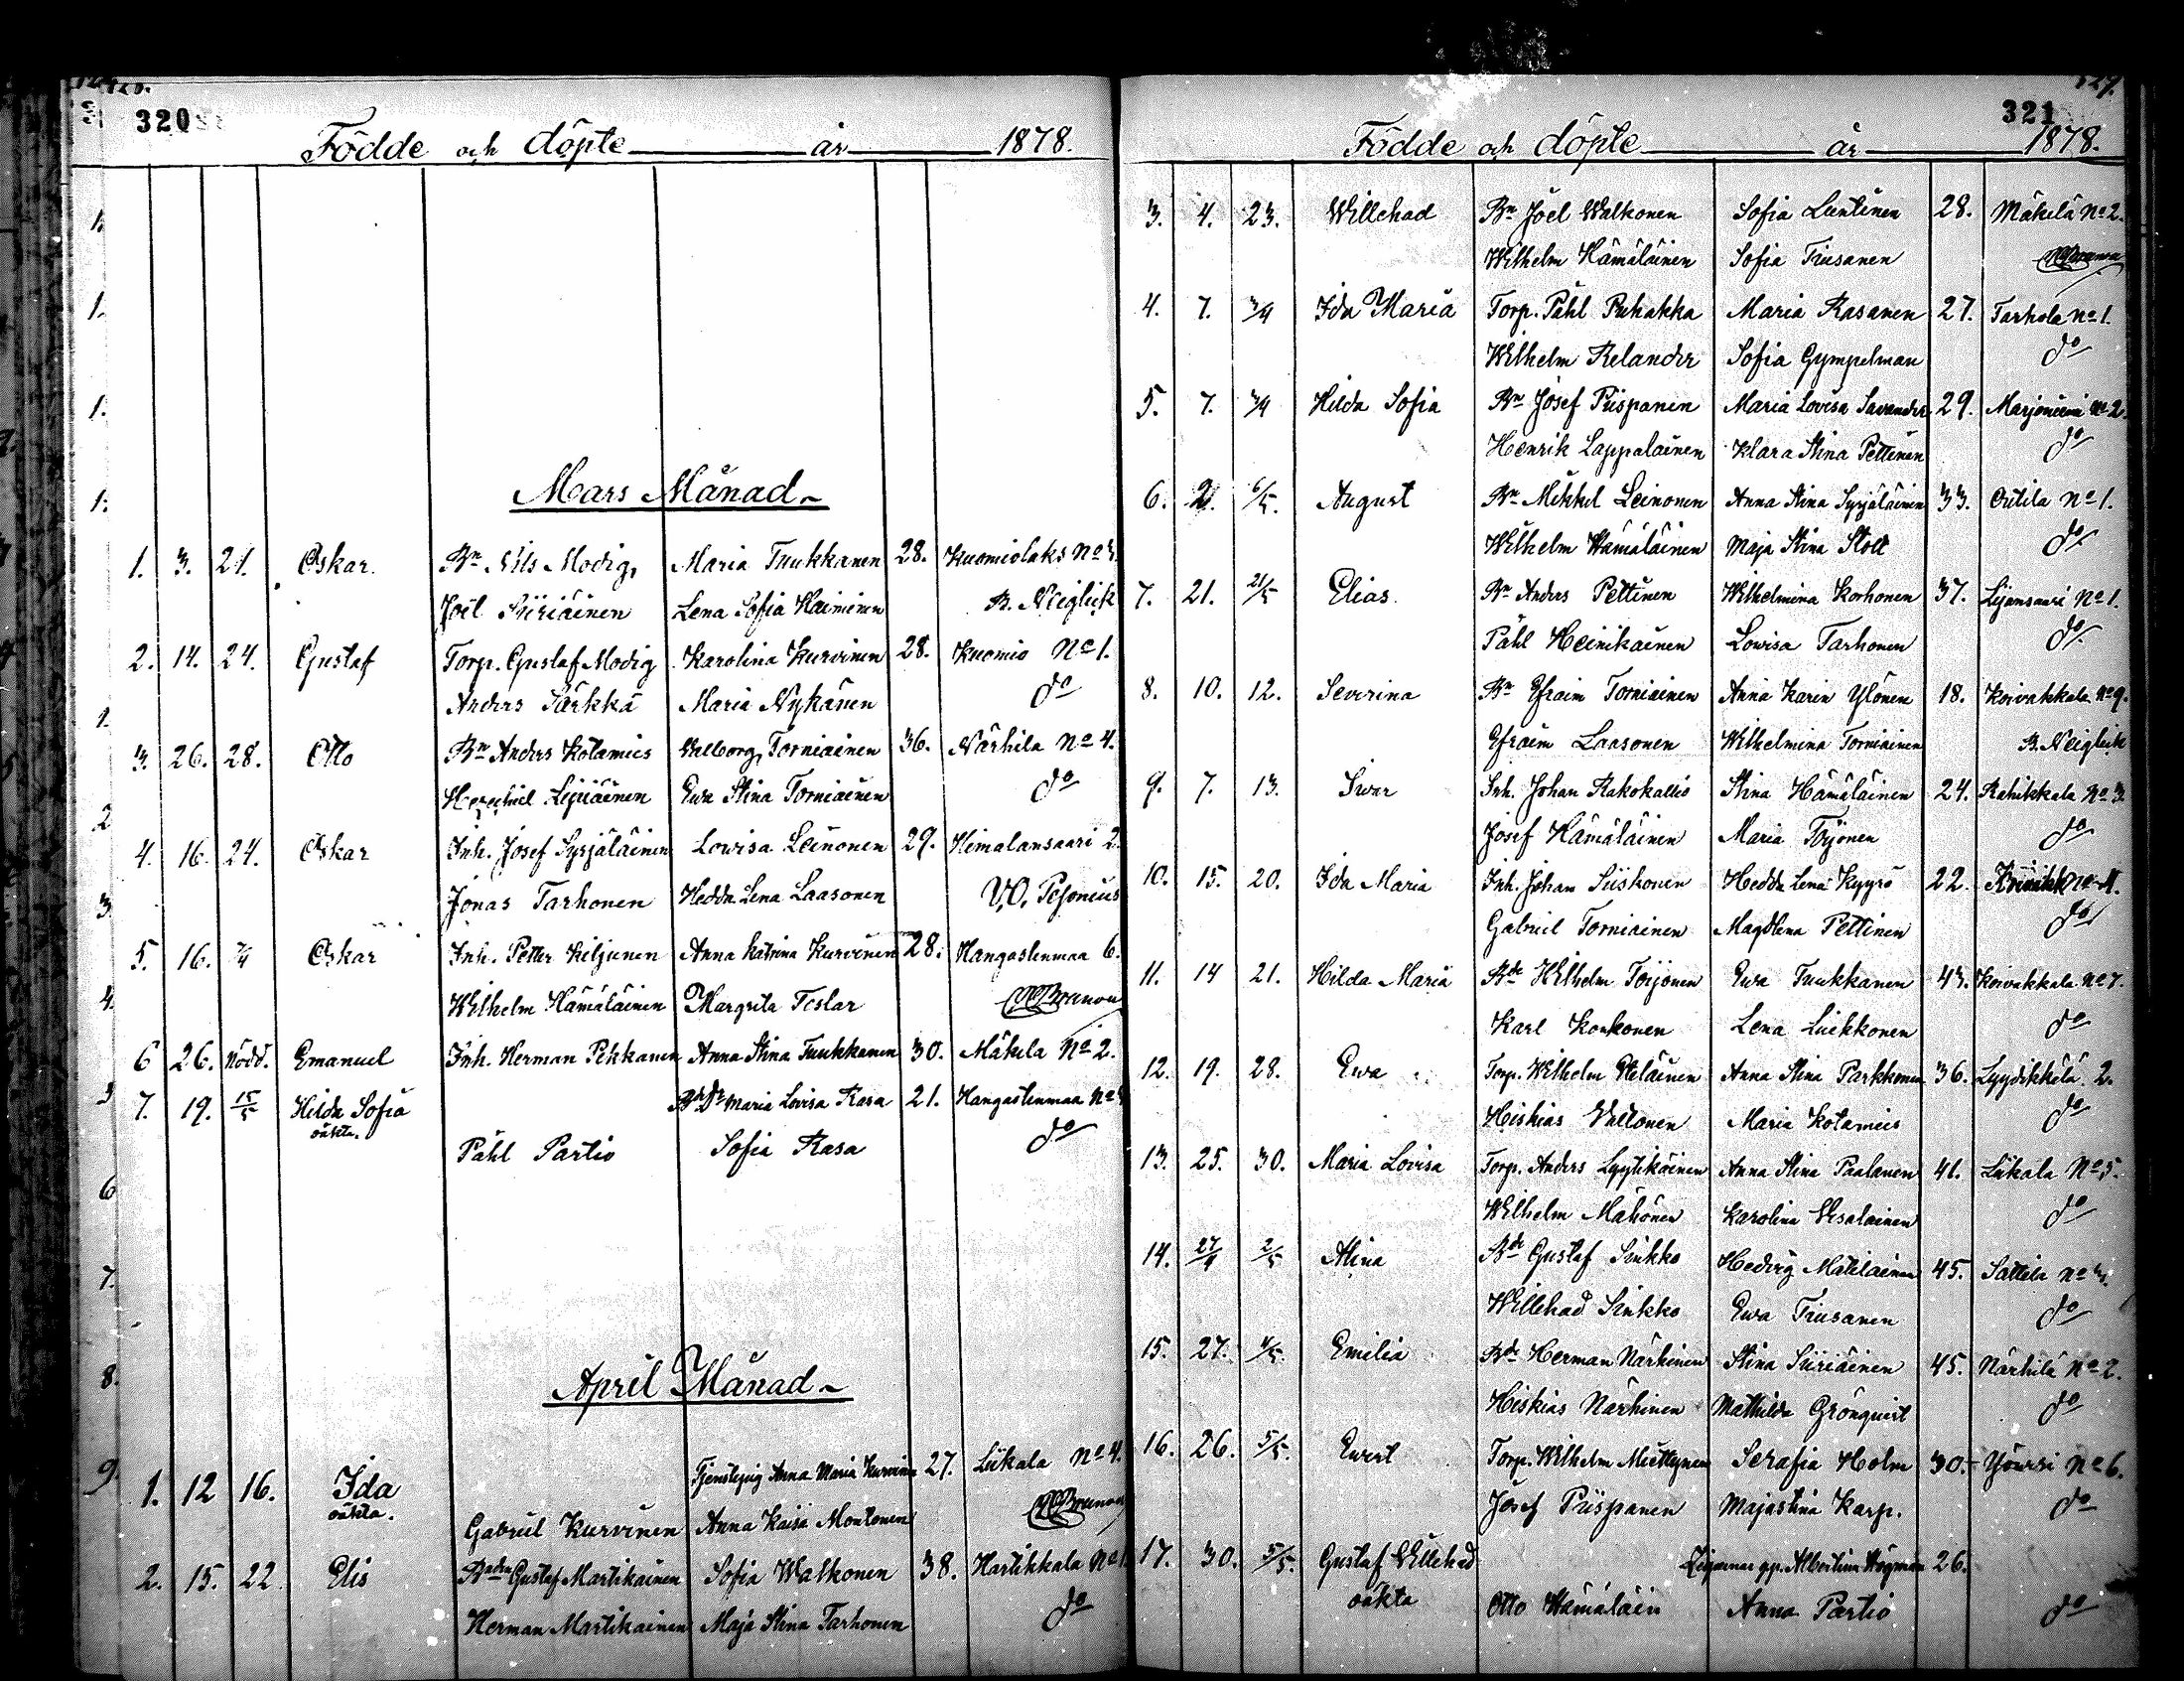 320
Födde och döpte år 1878.
Mars Månad
1. 3. 21. Oskar. Bn Nils Modig, Maria Tuukkanen 28. Kuomiolaks No 3.
Joël Siiriäinen Lena Sofia Kaininen B. Neiglick
2. 14. 24. Gustaf Torp. Gustaf Modig Karolina Kurvinen 28. Kuomio No 1.
Anders Särkkä Maria Nykänen do
3. 26. 28. Otto Bn Anders Kotamies Walborg Torniainen 36. Närhila No 4.
Hezechiel Liiriäinen Ewa Stina Torniainen do
4. 16. 24. Oskar Inh. Josef Syrjäläinen Lowisa Leinonen 29. Himalansaari 2.
Jonas Tarhonen Hedda Lena Laasonen V.O. Pesonius
5. 16. 7/4 Oskar Inh. Petter Kiljunen Anna Katrina Kurvinen 28. Hangastenmaa 6.
Wilhelm Hämäläinen Margrita Teslar
6 26. Nödd. Emanuel Inh. Herman Pekkanen Anna Stina Tuukkanen 30. Mäkelä No 2.
7. 19. 15/5 Hilda Sofia Bn Dr Maria Lovisa Rasa 21. Hangastenmaa No
oäkta.
Påhl Partio Sofia Rasa do
April Månad
1. 12 16. Ida Tjenstepig Anna Maria Kurvinen 27. Liikala No 4.
oäkta.
Gabriel Kurvinen Anna Kaisa Montonen
2. 15. 22 Elis Gustaf Martikainen Sofia Walkonen 38. Hartikkala No 1
Herman Martikainen Maja Stina Tarhonen do
321
Födde och döpte år 1878.
3. 4. 23. Willehad Bn Joel Walkonen Sofia Luntinen 28. Mäkelä No 2.
Wilhelm Hämäläinen Sofia Tiusanen
4. 7. 3/4 Ida Maria Torp. Påhl Puhakka Maria Rasanen 27. Tarhola No 1.
Wilhelm Relander Sofia Gympelman do
5. 7. Hilda Sofia Bn Josef Piispanen Maria Lovisa Savander 29. Marjoniemi No 2.
Henrik Lappalainen Klara Stina Pettinen do
6. 2. 6/5. August Bn Mikkel Leinonen Anna Stina Syrjäläinen 33. Outila No 1.
Wilhelm Hämäläinen Maja Stina Stolt do
7. 21. 21/5 Elias. Bn Anders Pettinen Wilhelmina Korhonen 37. Lijansaari No 1.
Påhl Heinikainen Lowisa Tarhonen do
8. 10. 12. Severina Bn Efraim Torniainen Anna Karin Ylönen 18. Koivakkala No 9.
Efraim Laasonen Wilhelmina Torniainen B. Neiglick
9. 7. 13. Iwar Inh. Johan Rakokallio Stina Hämäläinen 24. Rahikkala No 3.
Josef Hämäläinen Maria Torjonen do
10. 15. 20. Ida Maria Inh. Johan Siiskonen Hedda Lena Kyyrö 22. No 4.
Gabriel Torniainen Magdlena Pettinen do
11. 14 21. Hilda Maria Bde Wilhelm Toijonen Ewa Tuukkanen 43. Koivakkala No 7.
Karl Konkonen Lena Liukkonen do
12. 19. 28. Ewa Torp. Wilhelm Eteläinen Anna Stina Parkkonen 36. Lyydikkälä 2.
Heiskias Valtonen Maria Kotamies do
13. 25. 30. Maria Lovisa Torp. Anders Lyytikäinen Anna Stina Paalanen 41. Liikala No 5.
Wilhelm Mähönen Karolina Wesalainen do
14. 27/4 2/5 Alina Bde Gustaf Sinkko Hedvig Matilainen 45. Sattila No 3.
Willehad Sinkko Ewa Tiusanen do
15. 27. 4/5. Emilia Bde Herman Närhinen Stina Siiriäinen 45. Närhilä No 2.
Heiskias Närhinen Mathilda Grönqvist do
16. 26. 5/5. Ewert Torp. Wilhelm Miettynen Serafia Holm 30. Yöwesi No 6.
Josef Piispanen Majastina Karp. do
17. 30. 5/5. Gustaf Willehad Albertina Högman 26.
oäkta Otto Hämäläin Anna Partio do